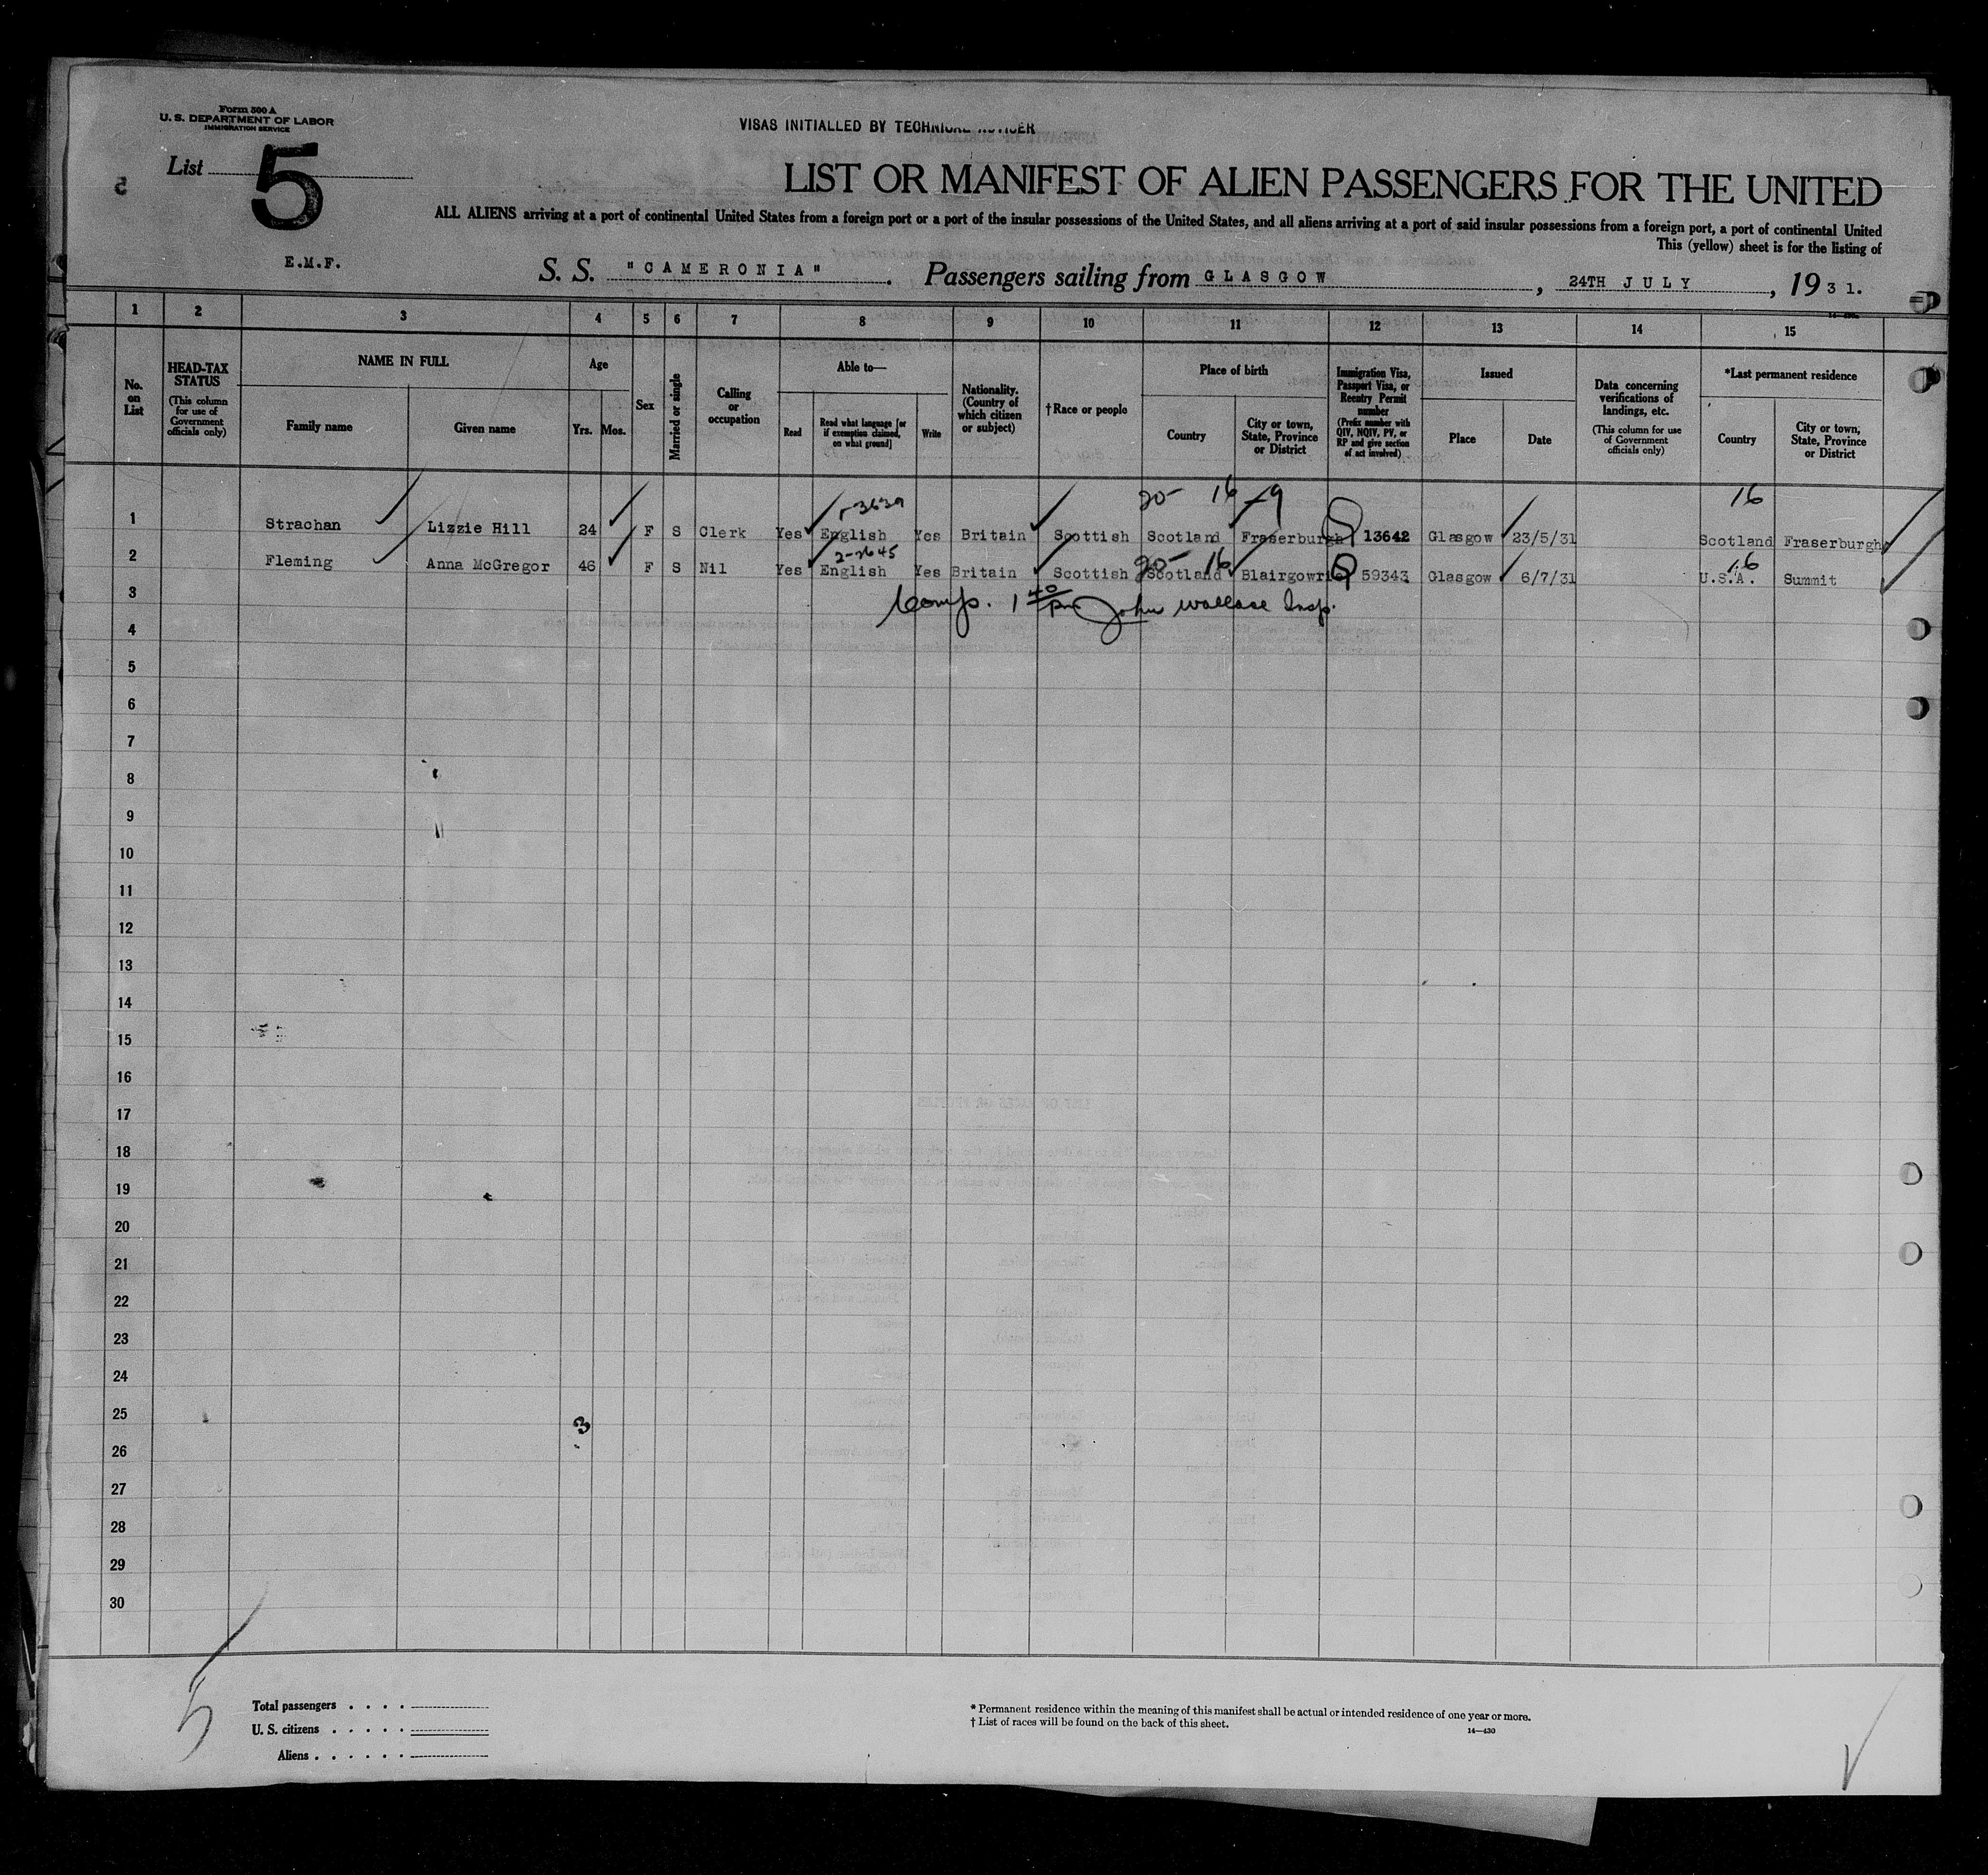 Form 500 A
U. S. DEPARTMENT OF LABOR
IMMIGRATION SERVICE
VISAS INITIALLED BY TECHNICAL ADVISER
List 5
LIST OR MANIFEST OF ALIEN PASSENGERS FOR THE UNITED
ALL ALIENS arriving at a port of continental United States from a foreign port or a port of the insular possessions of the United States, and all aliens arriving at a port of said insular possessions from a foreign port, a port of continental United
This (yellow) sheet is for the listing of
E.M.F.
S. S. "CAMERONIA". Passengers sailing from GLASGOW, 24TH JULY, 1931.
1 2 3 4 5 6 7 8 9 10 11 12 13 14 15
No. on List
HEAD-TAX STATUS (This column for use of Government officials only)
NAME IN FULL
Family name
Given name
Age
Yrs. Mos.
Sex
Married or single
Calling or occupation
Able to—
Read
Read what language [or if exemption claimed, on what ground]
Write
Nationality. (Country of which citizen or subject)
†Race or people
Place of birth
Country
City or town, State, Province or District
Immigration Visa, Passport Visa, or Reentry Permit number (Prefix number with QIV, NQIV, PV, or RP and give section of act involved)
Issued
Place
Date
Data concerning verifications of landings, etc. (This column for use of Government officials only)
*Last permanent residence
Country
City or town, State, Province or District
20- 16 -9 16
1 Strachan Lizzie Hill 24 F S Clerk Yes English Yes Britain Scottish Scotland Fraserburgh 13642 Glasgow 23/5/31 Scotland Fraserburgh
2-2645 20- 16 16
2 Fleming Anna McGregor 46 F S Nil Yes English Yes Britain Scottish Scotland Blairgowrie 59343 Glasgow 6/7/31 U.S.A. Summit
3 Comp. 1 40 pm John Wallace Insp.
4
5
6
7
8
9
10
11
12
13
14
15
16
17
18
19
20
21
22
23
24
25
3
26
27
28
29
30
5
Total passengers . . . .
U. S. citizens . . . . .
Aliens . . . . . .
* Permanent residence within the meaning of this manifest shall be actual or intended residence of one year or more.
† List of races will be found on the back of this sheet.
14—430